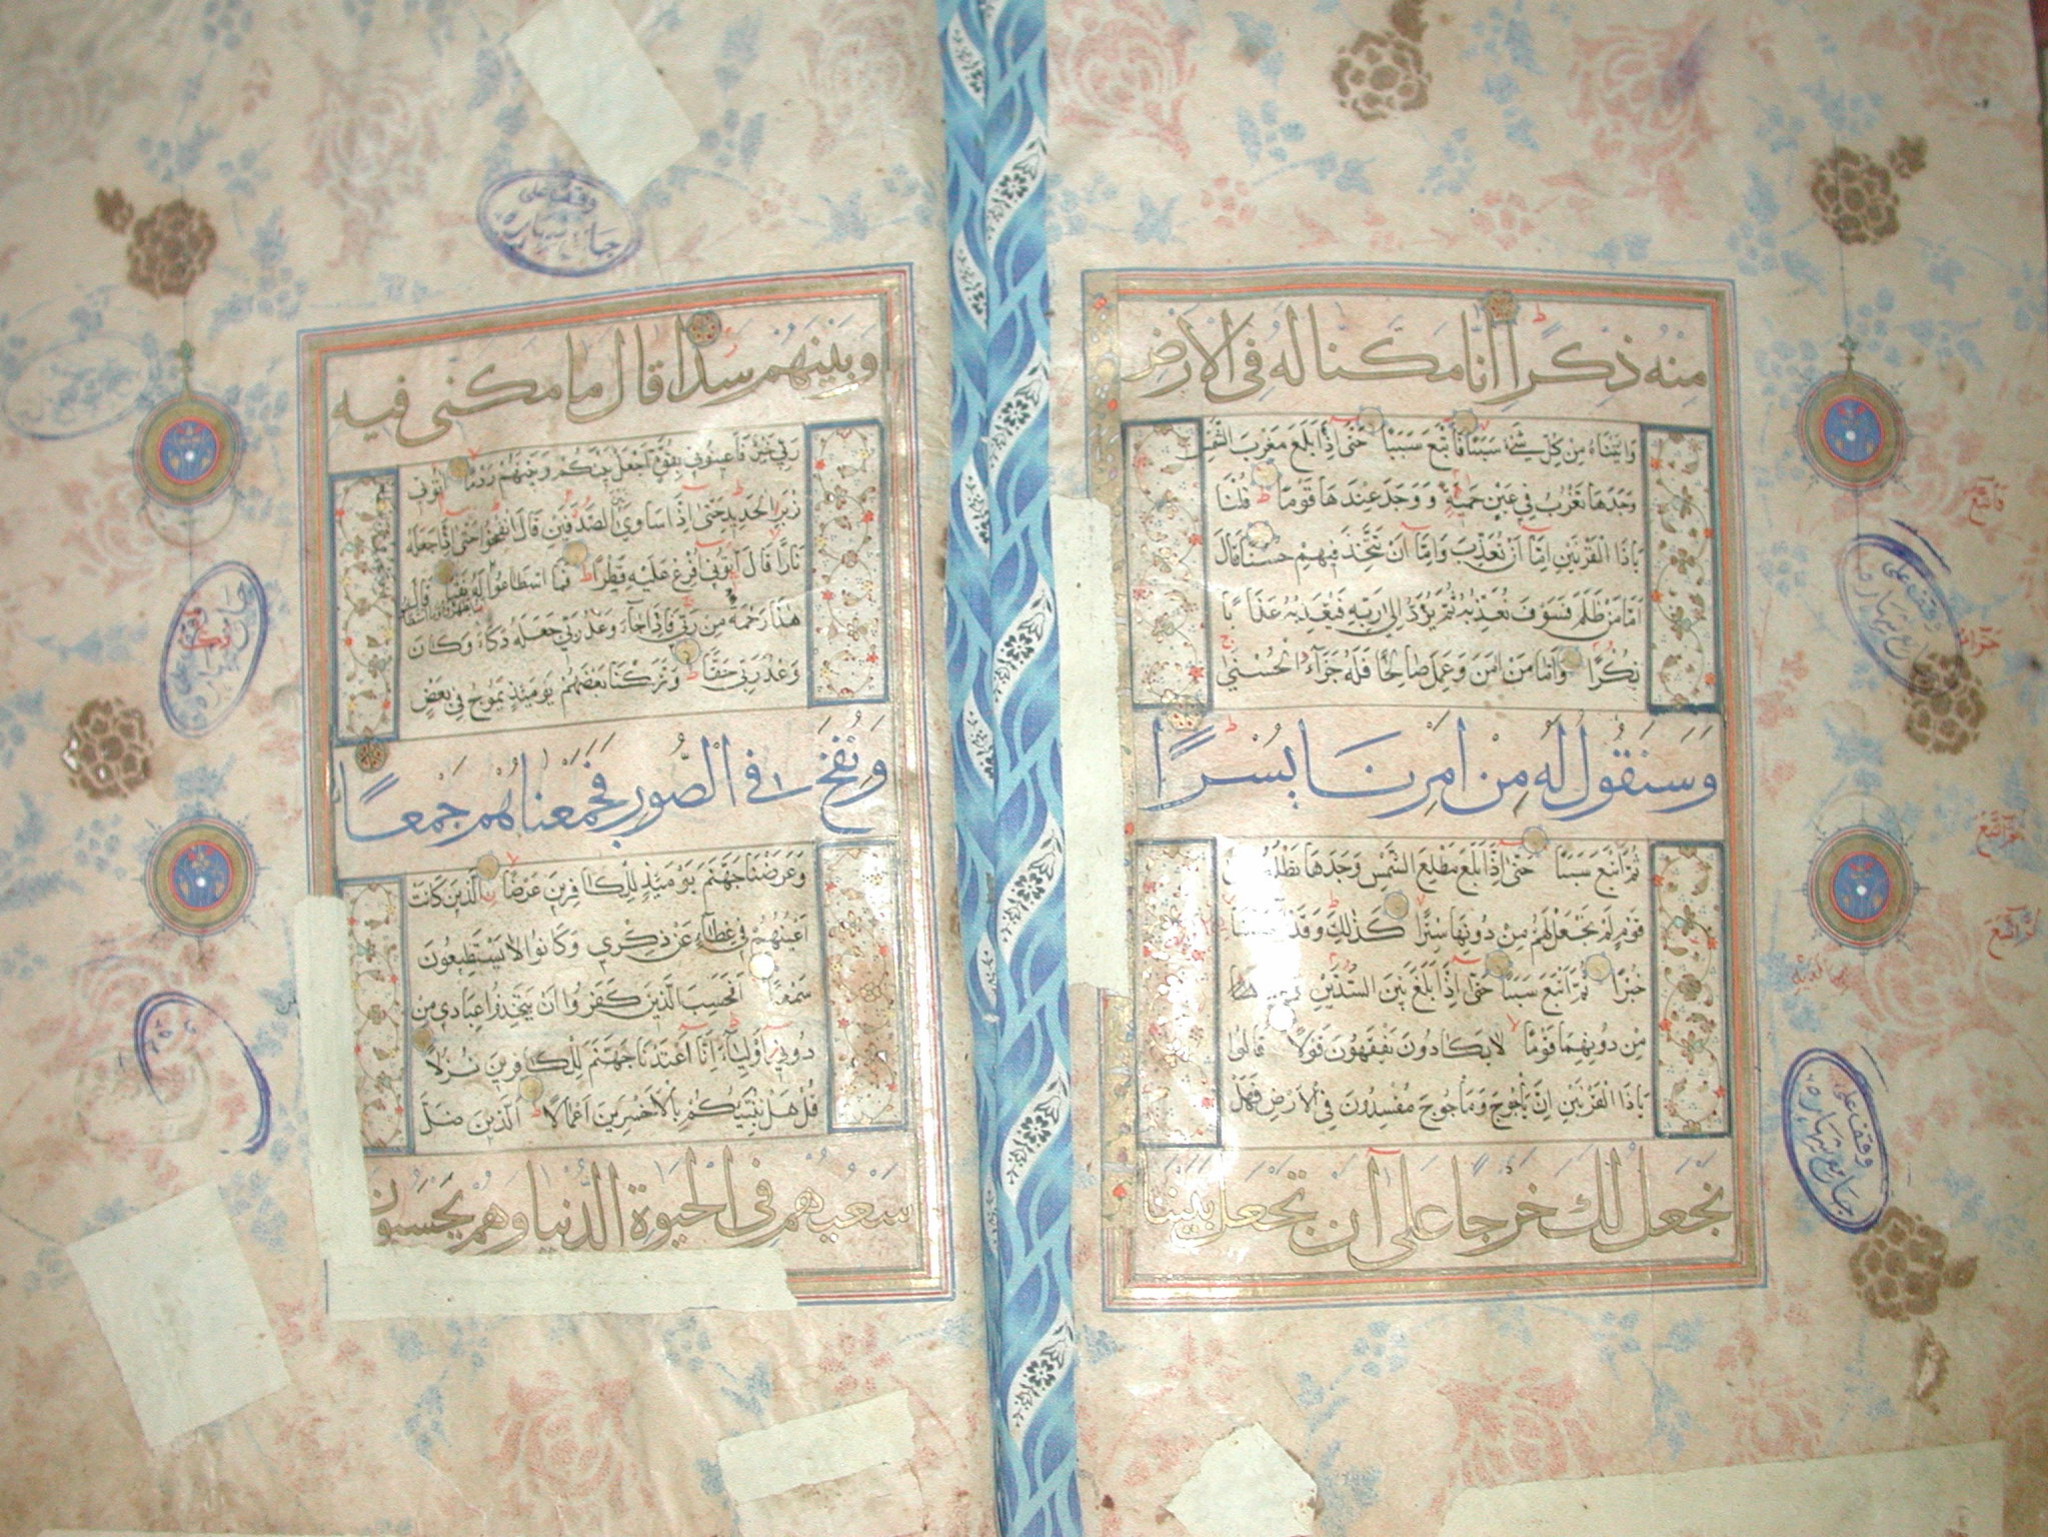 منه ذكرا انا مكنا له في الارض
واتيناه من كل شيء سببا فاتبع سببا حتى اذا بلغ مغرب الشمس
وجدها تغرب في عين حمئة ووجد عندها قوما قلنا
ياذا القرنين اما ان تعذب واما ان تتخذ فيهم حسنا قال
اما من ظلم فسوف نعذبه ثم يرد الى ربه فيعذبه عذابا
نكرا واما من امن وعمل صالحا فله جزاء الحسنى
وسنقول له من امرنا يسرا
ثم اتبع سببا حتى اذا بلغ مطلع الشمس وجدها تطلع
قوم لم نجعل لهم من دونها سترا كذلك وقد
خبرا ثم اتبع سببا حتى اذا بلغ بين السدين
من دونهما قوما لا يكادون يفقهون قولا قالوا
ياذا القرنين ان ياجوج وماجوج مفسدون في الارض فهل
نجعل لك خرجا على ان تجعل بيننا
وبينهم سدا قال ما مكني فيه
ربي خير فاعينوني بقوة اجعل بينكم وبينهم ردما اتوني
زبر الحديد حتى اذا ساوى بين الصدفين قال انفخوا حتى اذا جعله
نارا قال اتوني افرغ عليه قطرا فما اسطاعوا قال
هذا رحمة من ربي فاذا جاء وعد ربي جعله دكاء وكان
وعد ربي حقا وتركنا بعضهم يومئذ يموج في بعض
ونفخ في الصور فجمعناهم جمعا
وعرضنا جهنم يومئذ للكافرين عرضا الذين كانت
اعينهم في غطاء عن ذكري وكانوا لا يستطيعون
سمعا افحسب الذين كفروا ان يتخذوا عبادي من
دوني اولياء انا اعتدنا جهنم للكافرين نزلا
قل هل ننبئكم بالاخسرين اعمالا الذين ضل
سعيهم في الحيوة الدنيا وهم يحسبون
وقف على
وقف على
وقف على
وقف على
فاتبع